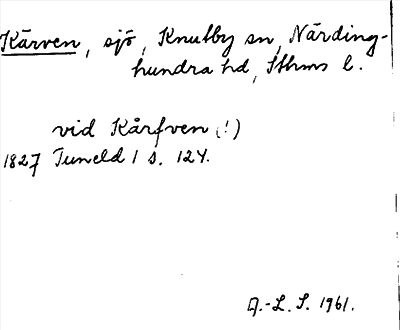 Kärven, sjö, Knutby sn, Närding-
hundra hd, Sthms l.
vid Kårfven (!)
1827 Tuneld 1 s. 124.
A.-L. S. 1961.